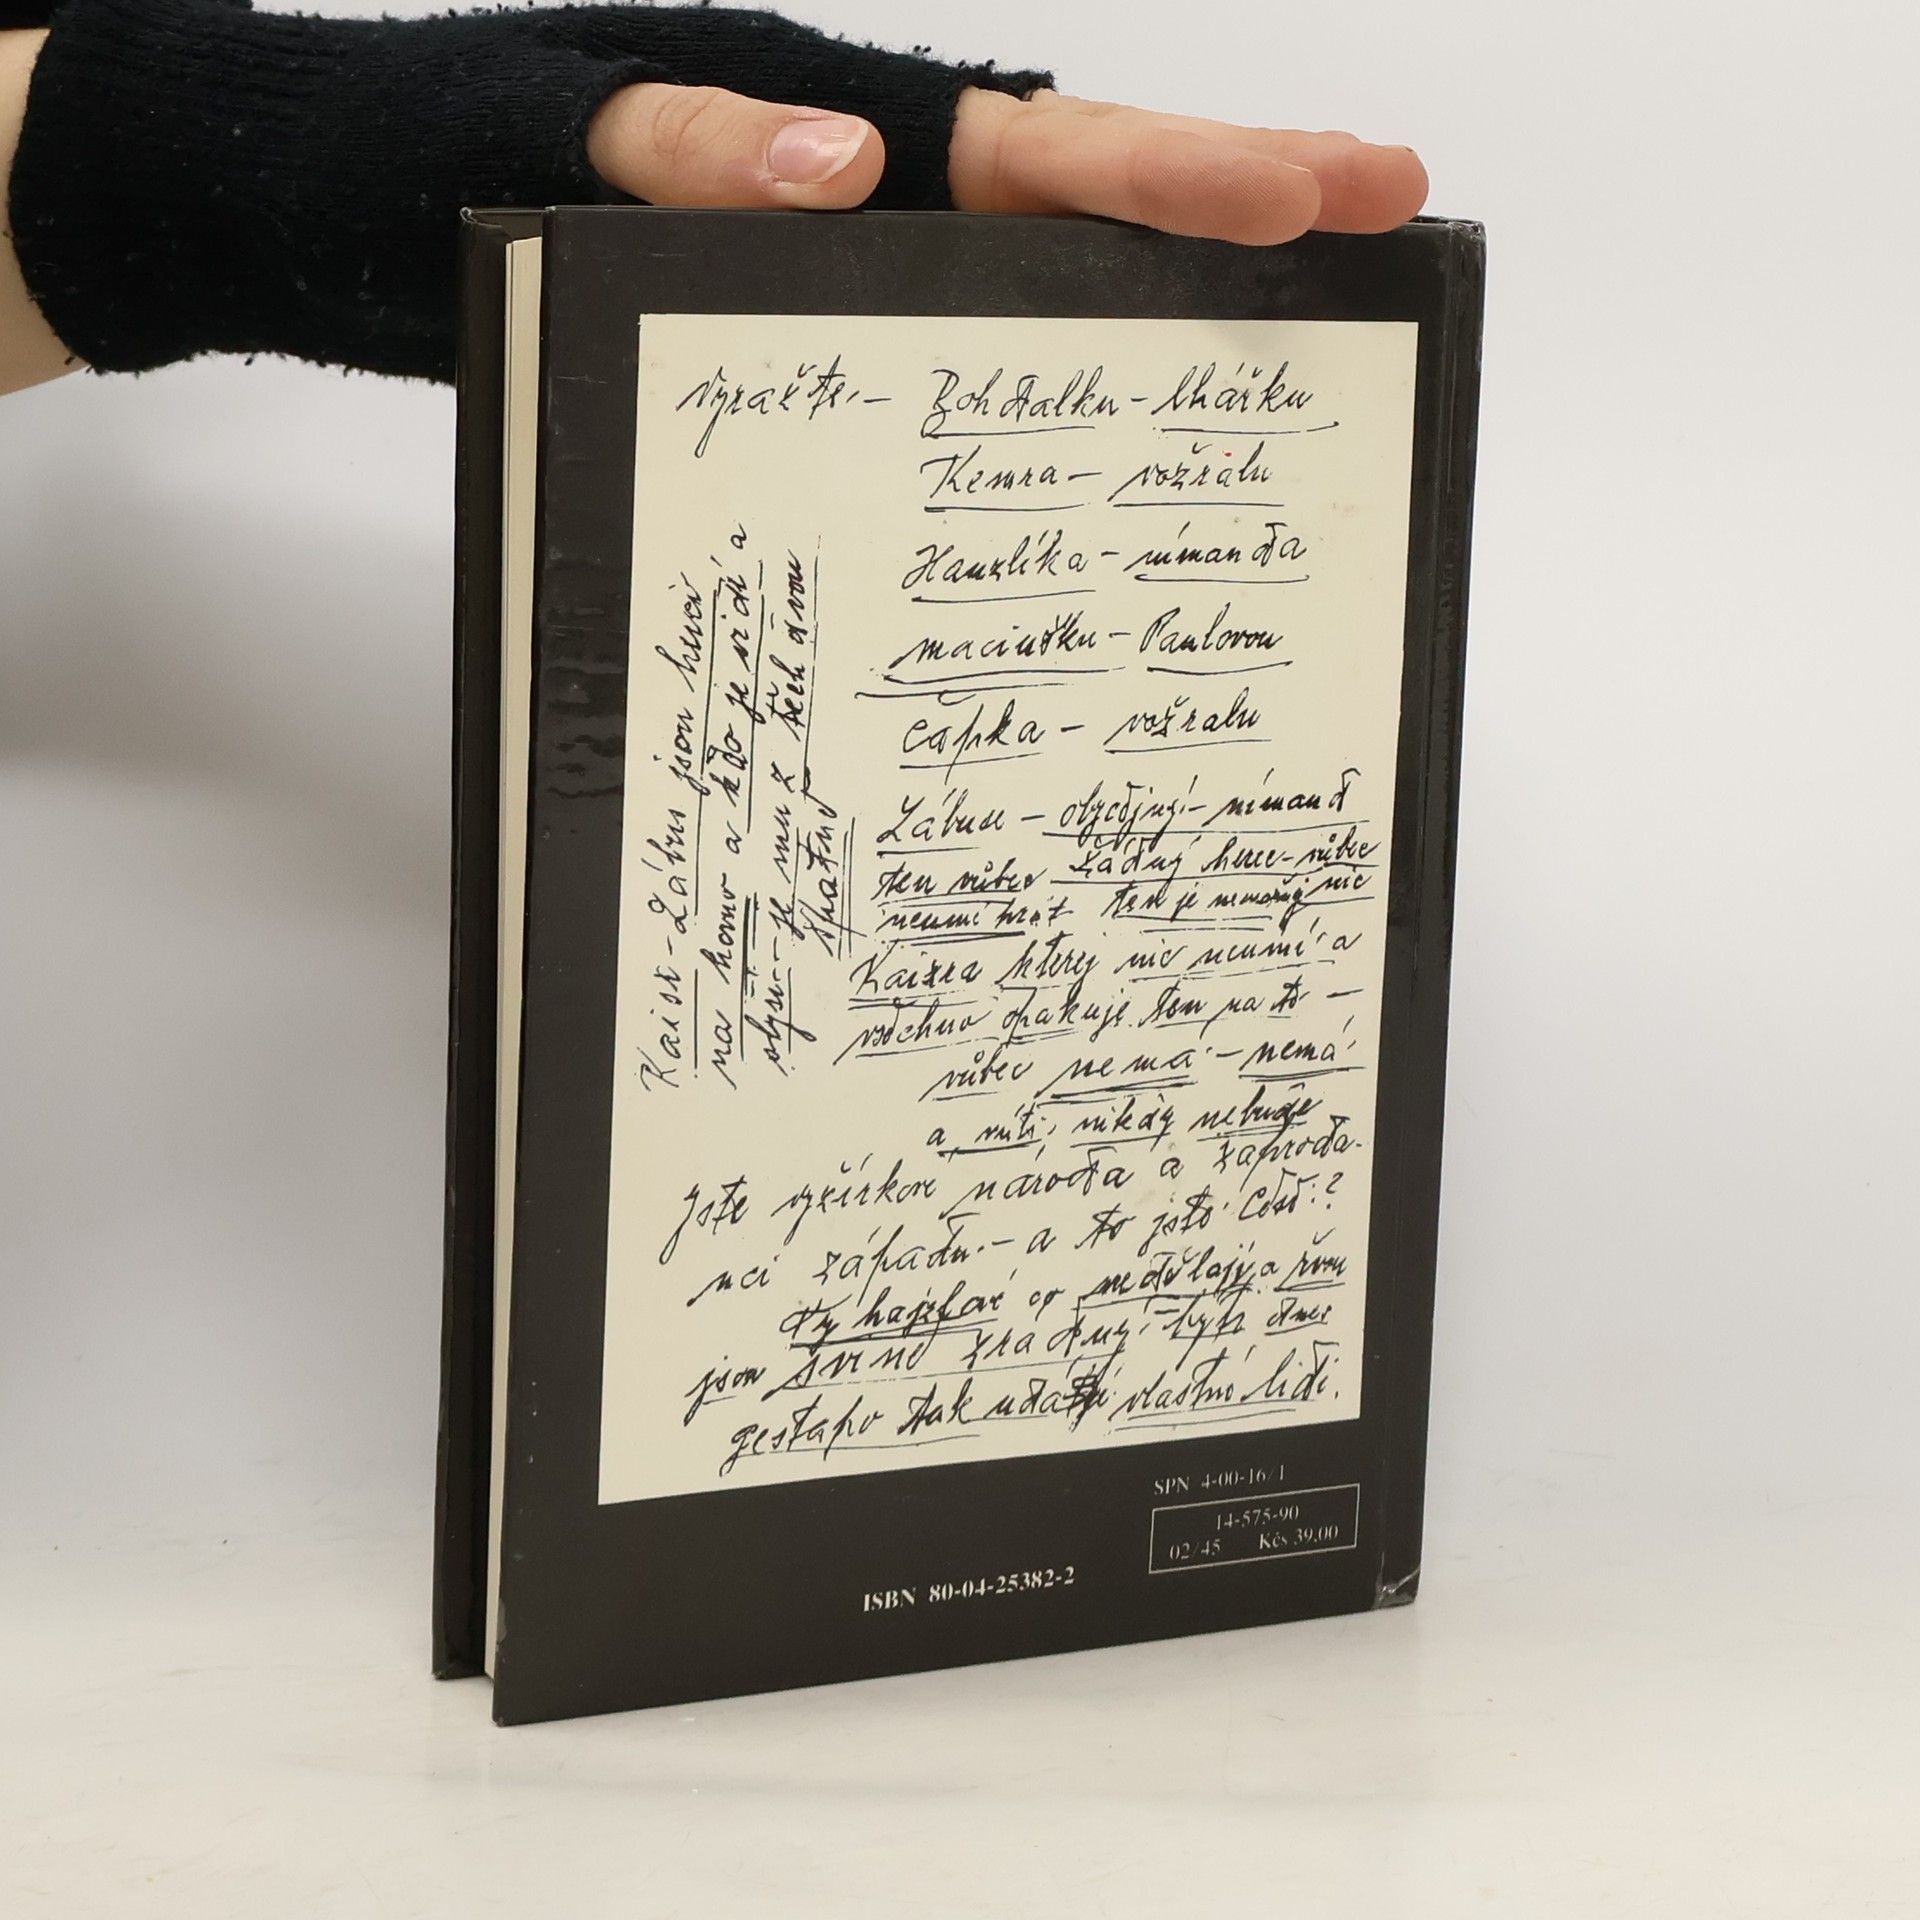 vyražte. – Bohdalku – lhářku
Kemra – vožralu
Hanzlíka – nímanda
maciušku – Paulovou
čapka – vožralu
Zábuse – obyčdjnyí – nímand
ten vůbec žádný herec – vůbec
neumí hrát ten je nemožnj nic
Kaisra kterej nic neumí a
všechno opakuje ten na to –
vůbec nemá – nemá
a níti, nikdy nebude
Jste vyžírkové národa a zaproda-
nci západu. – a to jsté Češi?
Ty hajzlové co nedělají a řvou
jsou svině zrádný – být dnes
gestapo tak udá vlastné lidi.
Kaisr – Zábus jsou herci
na hovno a kdo je vidí a
slyší – je mu z těch dvou
špatně
SPN 4-00-16/1
14-575-90
02/45 Kčs 39,00
ISBN 80-04-25382-2